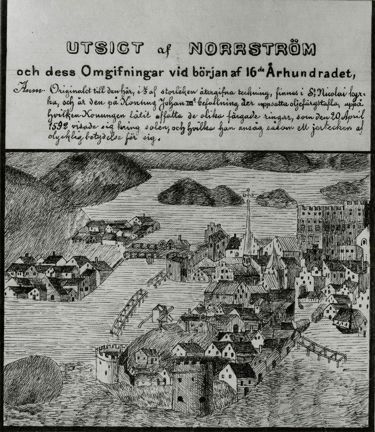 UTSIGT af NORRSTRÖM
och dess Omgifningar vid början af 16de Århundradet,
Anm. Originalet till den här, i ⅓ af storleken återgifna teckning, finnes i St Nicolai kyr-
ka, och är den på Konung Johan IIIs befallning der uppsatta oljefärgstafla, uppå
hvilken Konungen lätit affatta de olika färgade ringar, som den 20 April
1592 visade sig kring solen, och hvilka han ansåg såsom ett jertecken af
olycklig betydelse för sig.